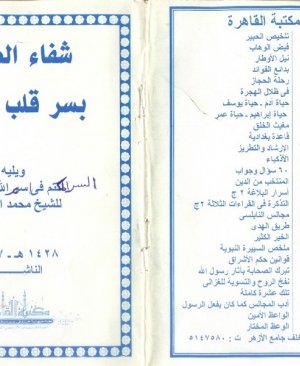 شفاء
بسر قلب
ويليه
السر
للشيخ محمد
١٤٢٨ هـ - ٧
الناشـ
مكتبة القاهرة
تلخيص الحبير
فيض الوهاب
نيل الأوطار
بدايع الفوائد
رحلة الحجاز
فى ظلال الهجرة
حياة آدم - حياة يوسف
حياة إبراهيم - حياة عمر
مغيث الخلق
قاعدة بغدادية
الإرشاد والتطريز
الأذكياء
٦٠ سؤال وجواب
المنتخب من الدين
أسرار البلاغة ٢ ج
التذكرة فى القراءات الثلاثة ٢ج
مجالس النابلسى
طريق الهدى
الخير الكثير
ملخص السيرة النبوية
قوانين حكم الاشراق
تبرك الصحابة بآثار رسول الله
نفخ الروح والتسوية للغزالى
تلك عشرة كاملة
أدب المجالس كما كان يفعل الرسول
الواعظ الأمين
الوعظ المختار
خلف جامع الأزهر ت : ٥١٤٧٥٨٠